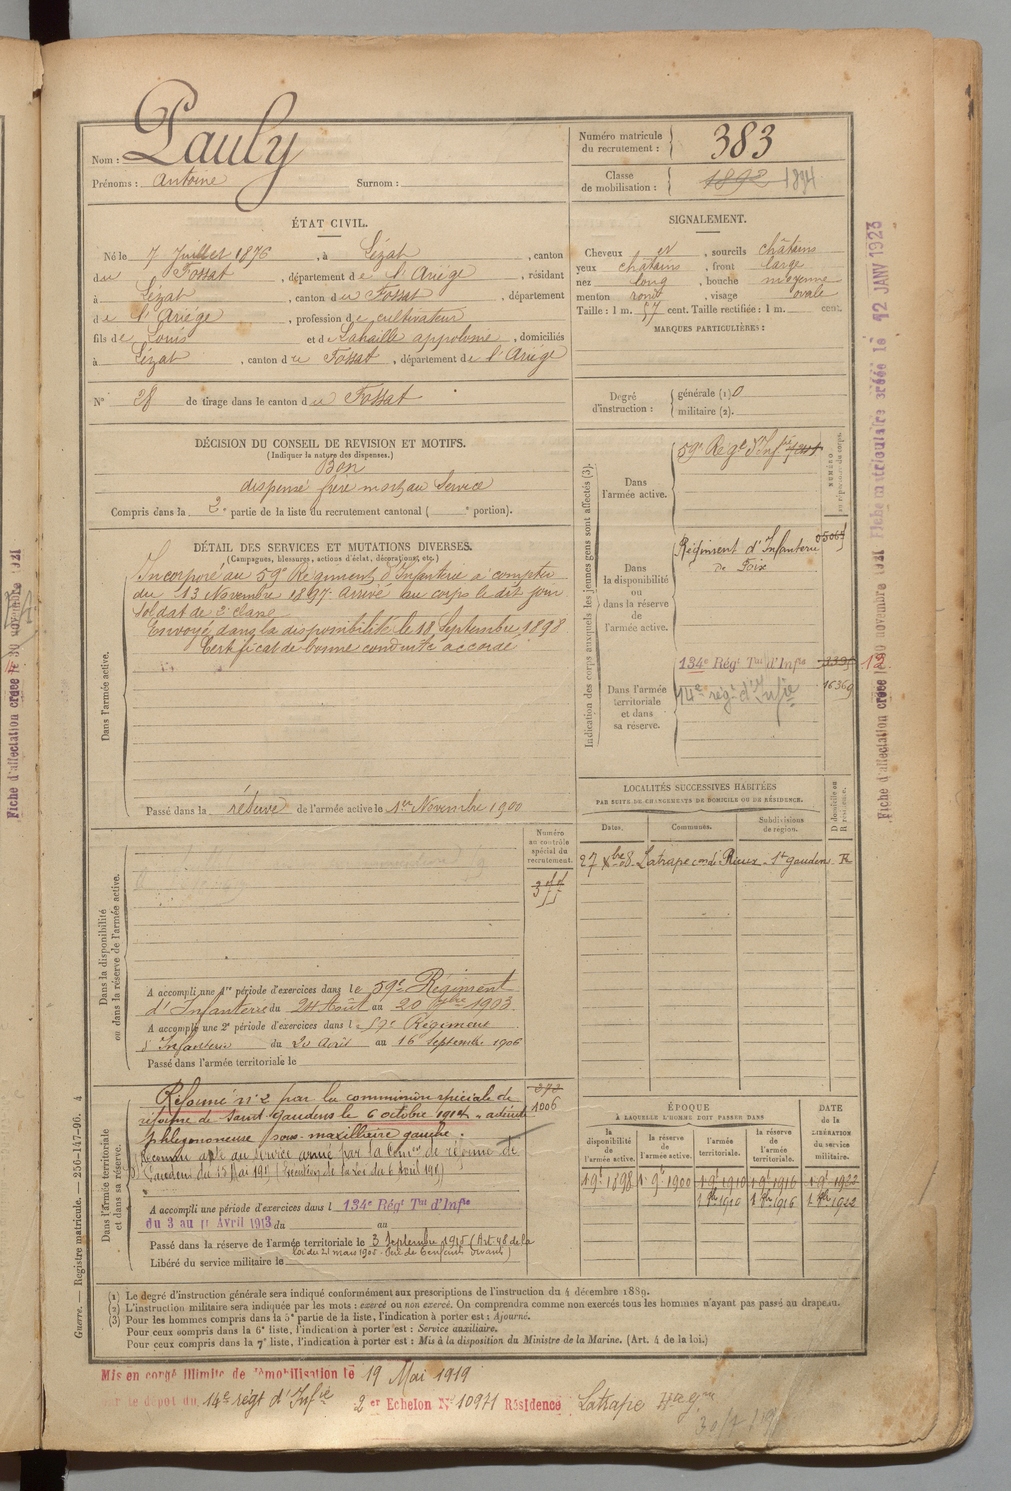 Nom : Pauly
Prénoms : Antoine Surnom :
Numéro matricule du recrutement : 383
Classe de mobilisation : 1892 1894
ÉTAT CIVIL.
Né le 7 Juillet 1876, à Lézat, canton
du Fossat, département de l'Ariège, résidant
à Lézat, canton du Fossat, département
de l'Ariège, profession de cultivateur
fils de Louis et de Lahaille appolonie, domiciliés
à Lézat, canton du Fossat, département de l'Ariège
N° 28 de tirage dans le canton du Fossat
SIGNALEMENT.
Cheveux et, sourcils châtains
yeux châtains, front large
nez long, bouche moyenne
menton rond, visage ovale
Taille : 1 m. 57 cent. Taille rectifiée : 1 m. cent.
MARQUES PARTICULIÈRES :
Degré d'instruction : générale (1) 0
militaire (2).
DÉCISION DU CONSEIL DE REVISION ET MOTIFS.
(Indiquer la nature des dispenses.)
Bon
dispensé frère mort au Service
Compris dans la 2e partie de la liste du recrutement cantonal ( e portion).
DÉTAIL DES SERVICES ET MUTATIONS DIVERSES.
(Campagnes, blessures, actions d'éclat, décorations, etc.)
Dans l'armée active.
Incorporé au 59e Régiment d'Infanterie à compter
du 13 Novembre 1897. Arrivé au corps le dit jour
Soldat de 2e classe
Envoyé dans la disponibilité le 18 Septembre 1898
Certificat de bonne conduite accordé
Passé dans la réserve de l'armée active le 1er Novembre 1900
Indication des corps auxquels les jeunes gens sont affectés (3).
NUMÉRO
au répertoire du corps.
Dans l'armée active.
59e Régt d'Infie
Dans la disponibilité ou dans la réserve de l'armée active.
Régiment d'Infanterie
de Foix
Dans l'armée territoriale et dans sa réserve.
134e Régt Tal d'Infie
12
16369
14e régt d'Infie
LOCALITÉS SUCCESSIVES HABITÉES
PAR SUITE DE CHANGEMENTS DE DOMICILE OU DE RÉSIDENCE.
Dates. Communes. Subdivisions de région. D domicile ou R résidence.
27 Xbre 08 Latrape con de Rieux St Gaudens R
Dans la disponibilité ou dans la réserve de l'armée active.
Numéro au contrôle spécial du recrutement.
A accompli une 1re période d'exercices dans le 59e Régiment
d'Infanterie du 24 Août au 20 7bre 1903.
A accompli une 2e période d'exercices dans le 59e Régiment
d'Infanterie du 20 Août au 16 Septembre 1906
Passé dans l'armée territoriale le
Dans l'armée territoriale et dans sa réserve.
1006
Réformé n° 2 par la commission spéciale de
réforme de Saint Gaudens le 6 octobre 1914 "adénite
phlegmoneuse sous-maxillaire gauche".
Reconnu apte au service armé par la Conon de réforme de
St Gaudens du 13 Mai 1915 (Exécution de la loi du 6 Août 1915)
A accompli une période d'exercices dans l 134e Régt Tal d'Infie
du 3 au 11 Avril 1913 du au
Passé dans la réserve de l'armée territoriale le 3 Septembre 1915 (Art. 48 de la
loi du 21 mars 1905 - Père de 6 enfants vivants)
Libéré du service militaire le
ÉPOQUE
À LAQUELLE L'HOMME DOIT PASSER DANS
la disponibilité de l'armée active. la réserve de l'armée active. l'armée territoriale. la réserve de l'armée territoriale.
DATE de la LIBÉRATION du service militaire.
1 9t 1898 1 9t 1900 1 9t 1910 1 9t 1916 1 9t 1922
1 8bre 1910 1 8bre 1916 1 8bre 1922
(1) Le degré d'instruction générale sera indiqué conformément aux prescriptions de l'instruction du 4 décembre 1889.
(2) L'instruction militaire sera indiquée par les mots : exercé ou non exercé. On comprendra comme non exercés tous les hommes n'ayant pas passé au drapeau.
(3) Pour les hommes compris dans la 5e partie de la liste, l'indication à porter est : Ajourné.
Pour ceux compris dans la 6e liste, l'indication à porter est : Service auxiliaire.
Pour ceux compris dans la 7e liste, l'indication à porter est : Mis à la disposition du Ministre de la Marine. (Art. 4 de la loi.)
Mis en congé illimité de démobilisation le 19 Mai 1919
par le dépôt du 14e régt d'Infie 2er Echelon N° 10971 Résidence Latrape Hte Gne
Guerre. — Registre matricule. — 256-147-96. 4
Fiche d'affectation créée le 30 novembre 1921
Fiche matriculaire créée le 12 JANV 1923
Fiche d'affectation créée le 30 novembre 1921